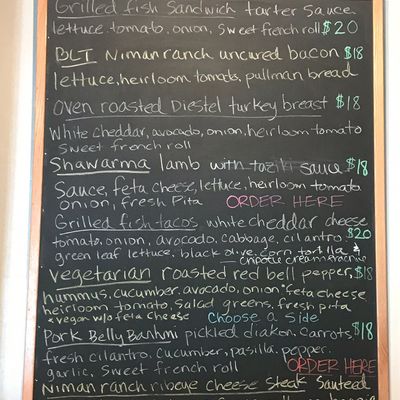 Grilled fish sandwich tarter sauce
lettuce, tomato, onion, sweet french roll $20
BLT Niman ranch uncured bacon $18
lettuce, heirloom tomato, pullman bread
Oven roasted Diestel turkey breast $18
White cheddar, avocado, onion, heirloom tomato
Sweet french roll
Shawarma lamb with taziki sauce $18
Sauce, feta cheese, lettuce, heirloom tomato
onion, fresh Pita ORDER HERE
Grilled fish tacos white cheddar cheese
tomato, onion, avocado, cabbage, cilantro $20
green leaf lettuce, black olive, corn tortilla &
chipotle cream fraiche
Vegetarian roasted red bell pepper, $18
hummus, cucumber, avocado, onion *feta cheese
heirloom tomato, Salad greens, fresh pita
*vegan w/o feta cheese Choose a Side
Pork Belly Banhmi pickled diakon, carrots, $18
fresh cilantro, cucumber, pasilla, pepper,
garlic, Sweet french roll ORDER HERE
Niman ranch ribeye cheese steak Sauteed